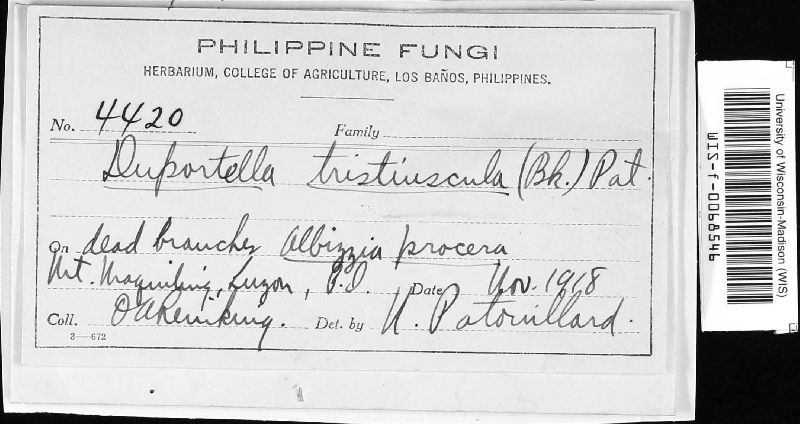 PHILIPPINE FUNGI
HERBARIUM, COLLEGE OF AGRICULTURE, LOS BAÑOS, PHILIPPINES.
No. 4420 Family
Duportella tristiuscula (Bk.) Pat.
On dead branches Albizzia procera
Mt. Maquiling, Luzon, P.I. Date Nov. 1918
Coll. O A Reinking. Det. by N. Patouillard.
3—672
University of Wisconsin-Madison (WIS)
WIS-f-0068546